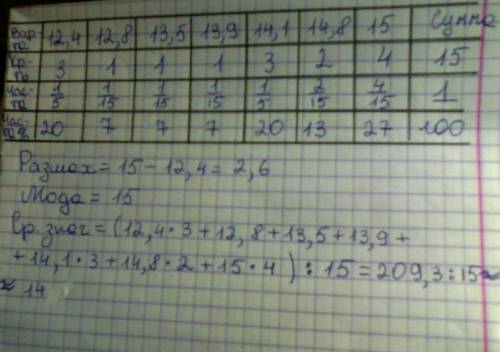 Вар-та 12,4 12,8 13,5 13,9 14,1 14,8 15 Сумма
Кр-ть 3 1 1 1 3 2 4 15
Час-та 1/5 1/15 1/15 1/15 1/5 2/15 4/15 1
20 7 7 7 20 13 27 100
Размах = 15 - 12,4 = 2,6
Мода = 15
Ср. знач = (12,4·3 + 12,8 + 13,5 + 13,9 +
+ 14,1·3 + 14,8·2 + 15·4) : 15 = 209,3 : 15 ≈
≈ 14